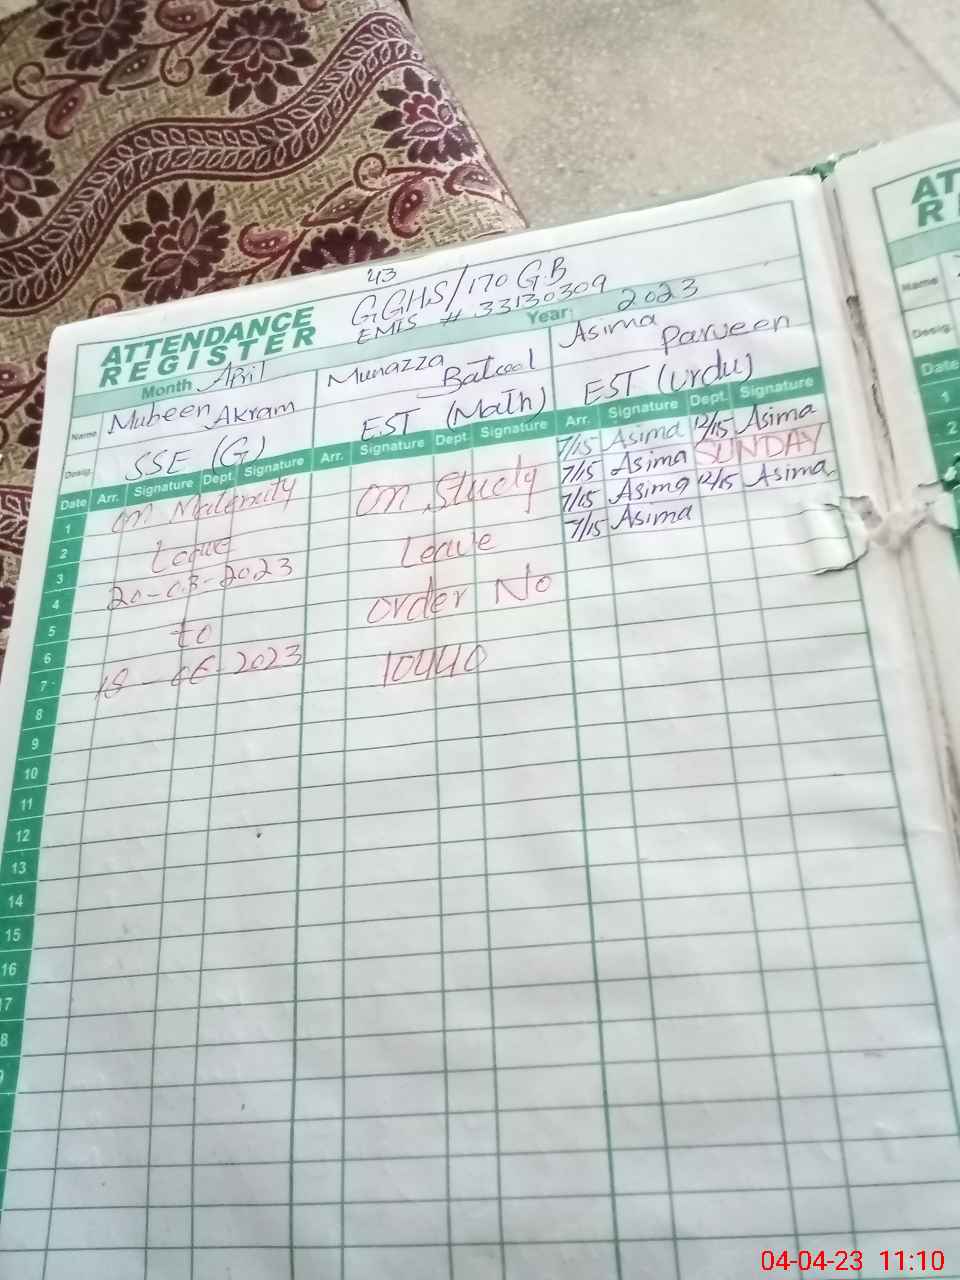 43
GGHS/170 GB
EMIS # 33130309
ATTENDANCE
REGISTER
Month April
Year: 2023
Name Mubeen Akram
Munazza Batool
Asima Parveen
Desig. SSE (G)
EST (Math)
EST (Urdu)
Date Arr. Signature Dept. Signature Arr. Signature Dept. Signature Arr. Signature Dept. Signature
1 on Maternity on Study 7/15 Asima 12/15 Asima
2 Leave Leave 7/15 Asima SUNDAY
3 20-03-2023 order No 7/15 Asima 12/15 Asima
4 to 10440 7/15 Asima
5 18-06-2023
6
7
8
9
10
11
12
13
14
15
16
AT
Name
Desig.
Date
1
2
04-04-23 11:10